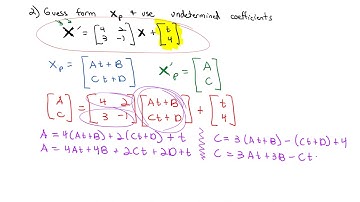 2) Guess form Xp + use undetermined coefficients
X' = [4 2; 3 -1] X + [t; 4]
Xp = [At + B; Ct + D] X'p = [A; C]
[A; C] = [4 2; 3 -1] [At+B; Ct+D] + [t; 4]
A = 4(At+B) + 2(Ct+D) + t C = 3(At+B) - (Ct+D) + 4
A = 4At + 4B + 2Ct + 2D + t C = 3At + 3B - Ct